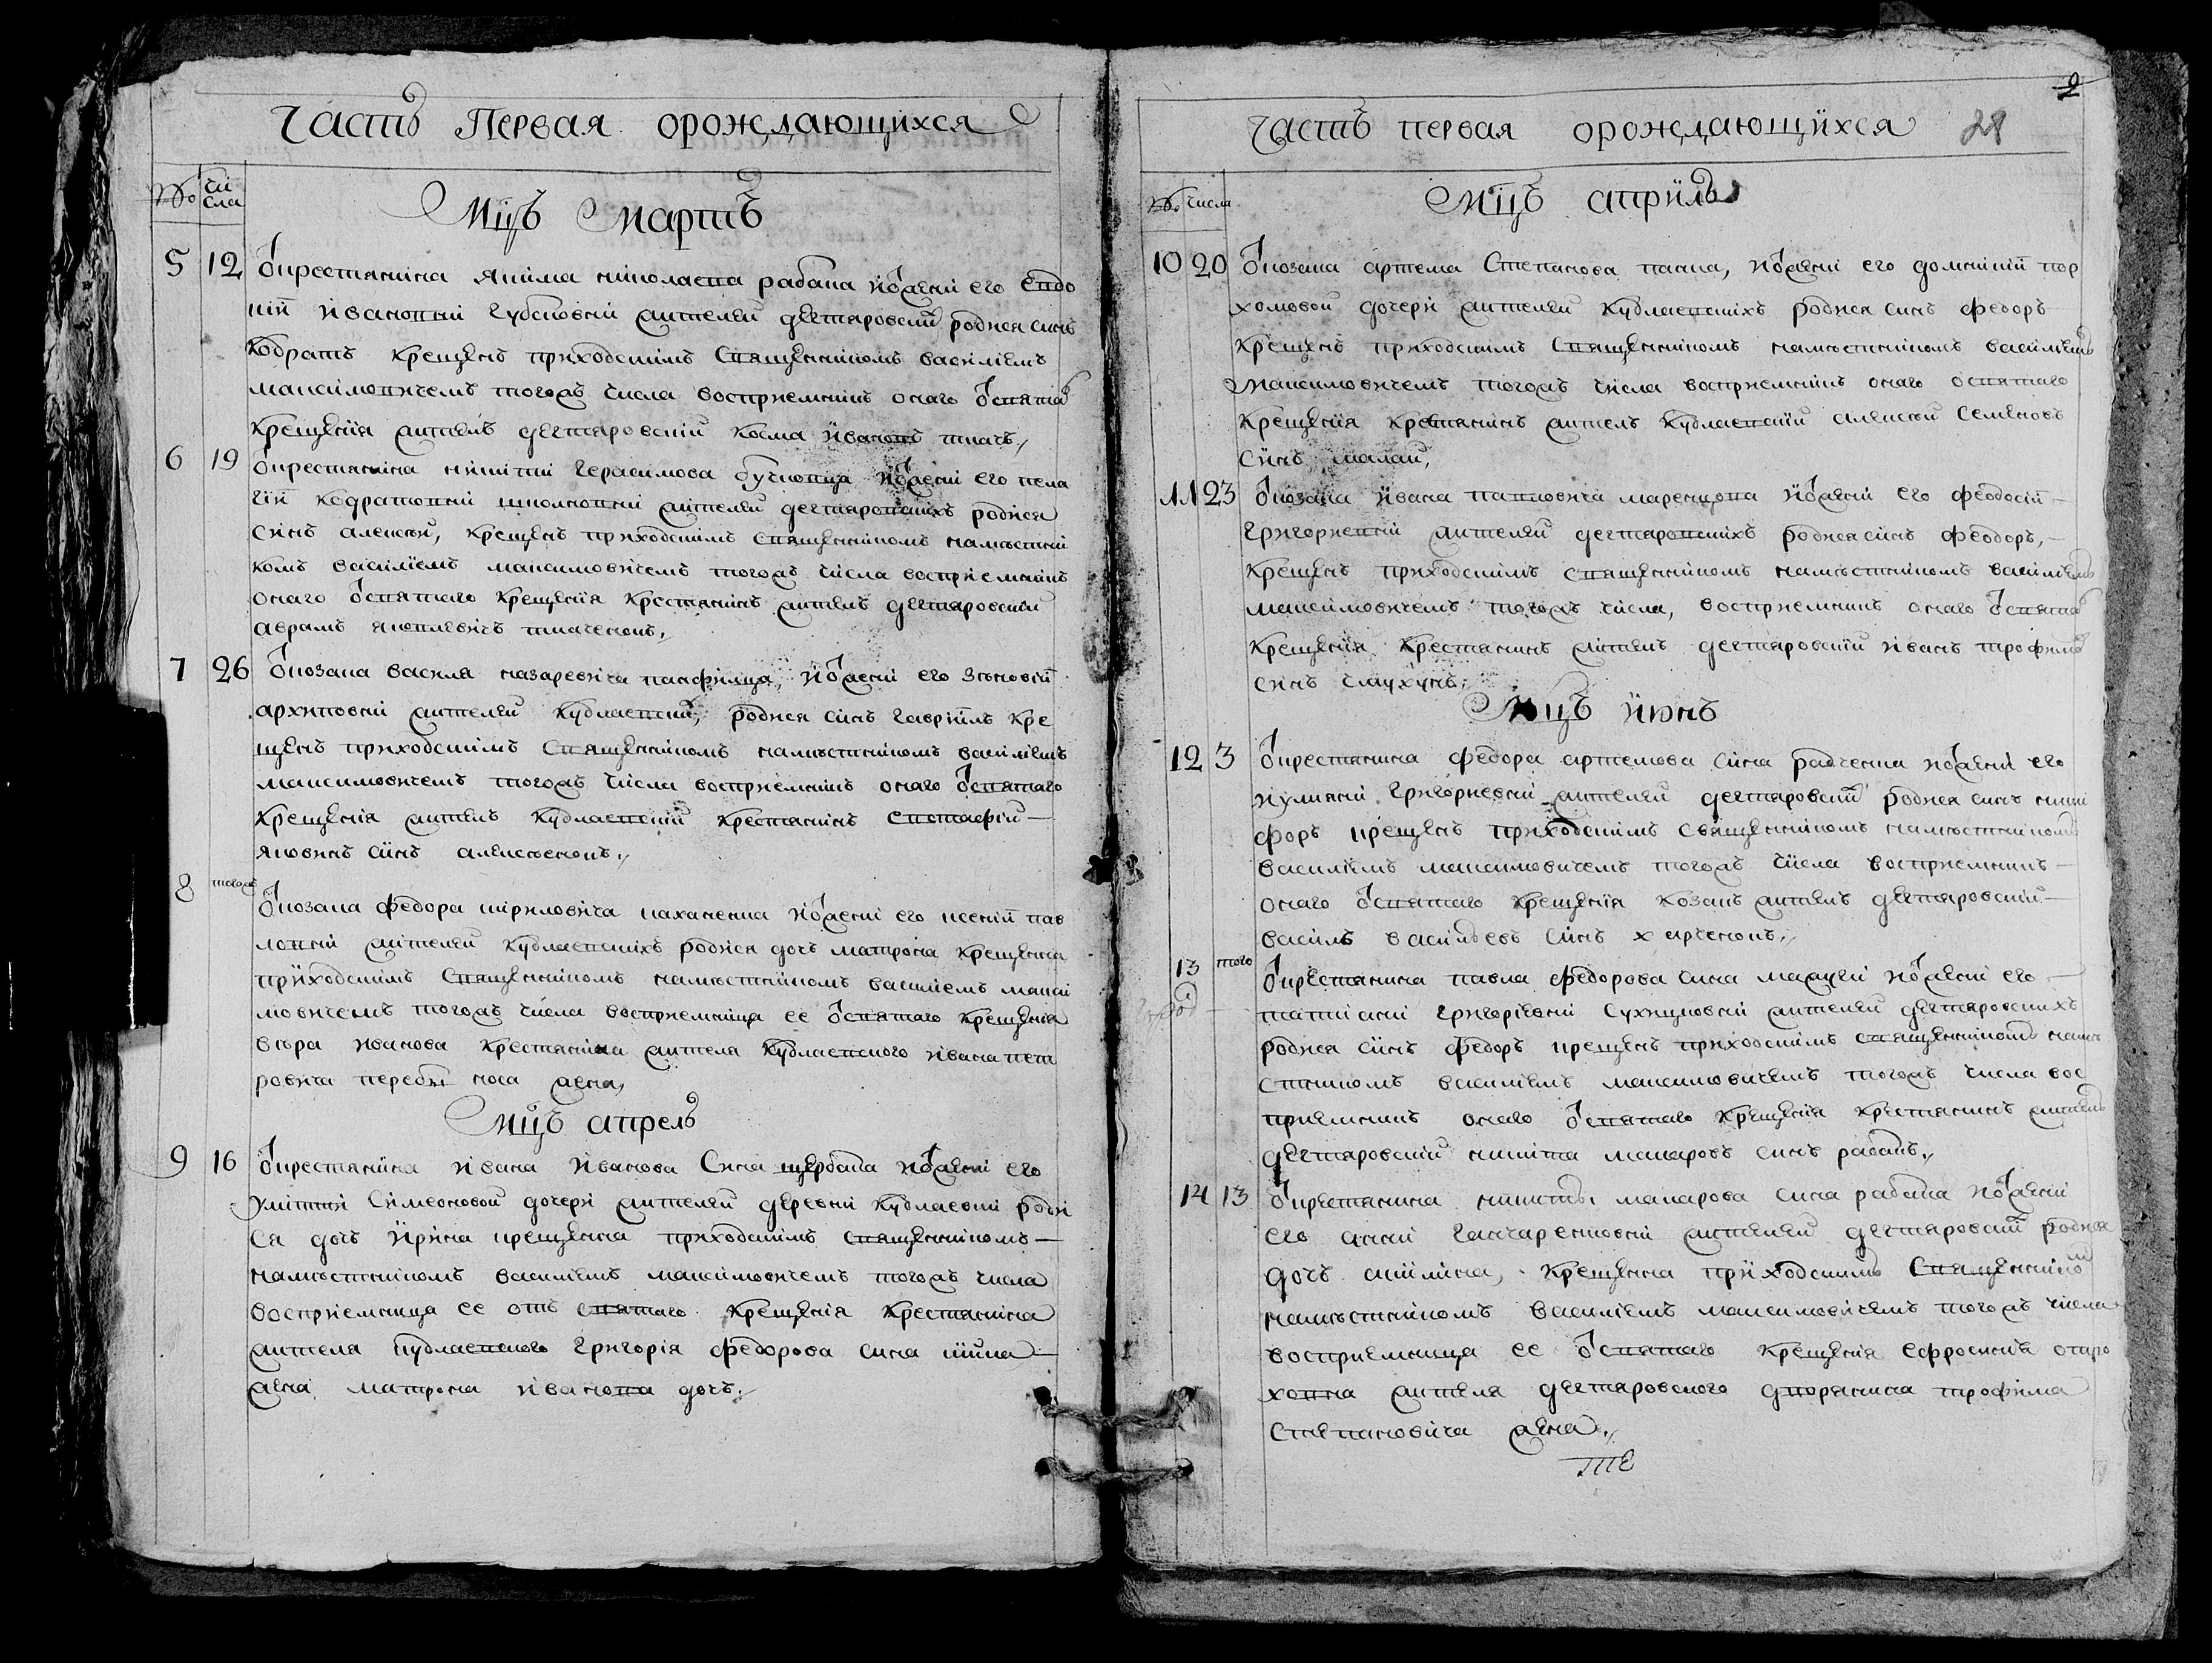 Часть Первая орождающихся
№ Чи
сла
Мцъ Мартъ
5 12 Ѿкрестянина якима николаева рабана иѿжени его Евдо
кіи Ивановни губсковни жителей дегтяровскихъ родися синъ
Кодратъ крещенъ приходскимъ Священникомъ василіемъ
максимовичемъ тогожъ числа восприемникъ онаго ѿсвятаго
Крещенія житель дегтяровскій козма Ивановъ ткачъ,
6 19 Ѿкрестянина никити герасимова иѿжени его пела
гіи кодратовни жителей дегтяровскихъ родися
синъ алексѣй, крещенъ приходскимъ священникомъ намѣстни
комъ василіемъ максимовичемъ тогожъ числа восприемникъ
онаго ѿсвятаго крещенія крестянинъ житель дегтяровскій
аврамъ яковлевичъ ткаченокъ,
7 26 Ѿкозака василя назаревича панфилца, иѿжени его зѣновіи
архиповни жителей Кудлаевскихъ, родися синъ гавріилъ кре
щенъ приходскимъ священникомъ намѣстникомъ василіемъ
максимовичемъ тогожъ числа восприемникъ онаго ѿсвятаго
крещенія житель кудлаевскій крестянинъ Евстафій
яковичъ синъ алексѣенокъ,
8 тогожъ
Ѿкозака федора кириловича каханенка иѿжени его ксеніи пав
ловни жителей кудлаевскихъ родися дочъ матрона крещенна
приходскимъ Священникомъ намѣстникомъ василіемъ макси
мовичемъ тогожъ числа восприемница ее ѿсвятаго крещенія
вѣра иванова крестянина жителя Кудлаевского ивана пет
ровича переби носа жена,
Мцъ апрель
9 16 Ѿкрестянина ивана иванова Сина щербака иѿжени его
улитти Симеоновой дочери жителей деревни кудлаевки роди
ся дочъ ирина крещенна приходскимъ священникомъ
намѣстникомъ василіемъ максимовичемъ тогожъ числа
восприемница ее отъ святаго крещенія крестянина
жителя кудлаевского григорія федорова сина
жена матрона иванова дочъ,
2
Часть первая орождающихся 28
№ числа
Мцъ априль
10 20 Ѿкозака артема Степанова панка, иѿжени его домникіи пар
хомовой дочери жителей Кудлаевскихъ родися синъ федоръ
крещенъ приходскимъ Священникомъ намѣстникомъ василіемъ
максимовичемъ тогожъ числа восприемникъ онаго ѿсвятаго
крещенія крестянинъ житель кудлаевскій алексѣй Семеновъ
синъ малай,
11 23 Ѿкозака ивана павловича маренцова иѿжени его феодосіи
григориевни жителей дегтяровскихъ родися синъ феодоръ,
крещенъ приходскимъ священникомъ намѣстникомъ василіемъ
максимовичемъ тогожъ числа, восприемникъ онаго ѿсвятаго
крещенія крестянинъ житель дегтяровскій иванъ трофимовъ
синъ
Мцъ июнъ
12 3 Ѿкрестянина федора артемова сина радченка иѿжени его
иулияни григориевни жителей дегтяровскихъ родися синъ ники
форъ крещенъ приходскимъ Священникомъ намѣстникомъ
василіемъ максимовичемъ тогожъ числа восприемникъ
онаго ѿсвятаго крещенія козакъ житель дегтяровскій
василь васильевъ синъ харченокъ,
13 того
Ѿкрестянина павла федорова сина мацуги иѿжени его
татияни григоріевни Сухицковни жителей дегтяровскихъ
родися синъ федоръ крещенъ приходскимъ священникомъ намѣ
стникомъ василіемъ максимовичемъ тогожъ числа вос
приемникъ онаго ѿсвятаго крещенія крестянинъ житель
дегтяровскій никита макаровъ синъ рабанъ,
14 13 Ѿкрестянина никиты макарова сина рабана иѿжени
его анни ганчаренковни жителей дегтяровскихъ родися
дочъ акилина, крещенна приходскимъ Священникомъ
намѣстникомъ василіемъ максимовичемъ тогожъ числа
восприемница ее ѿсвятаго крещенія ефросинія
жителя дегтяровского дворянина трофима
Степановича жена,